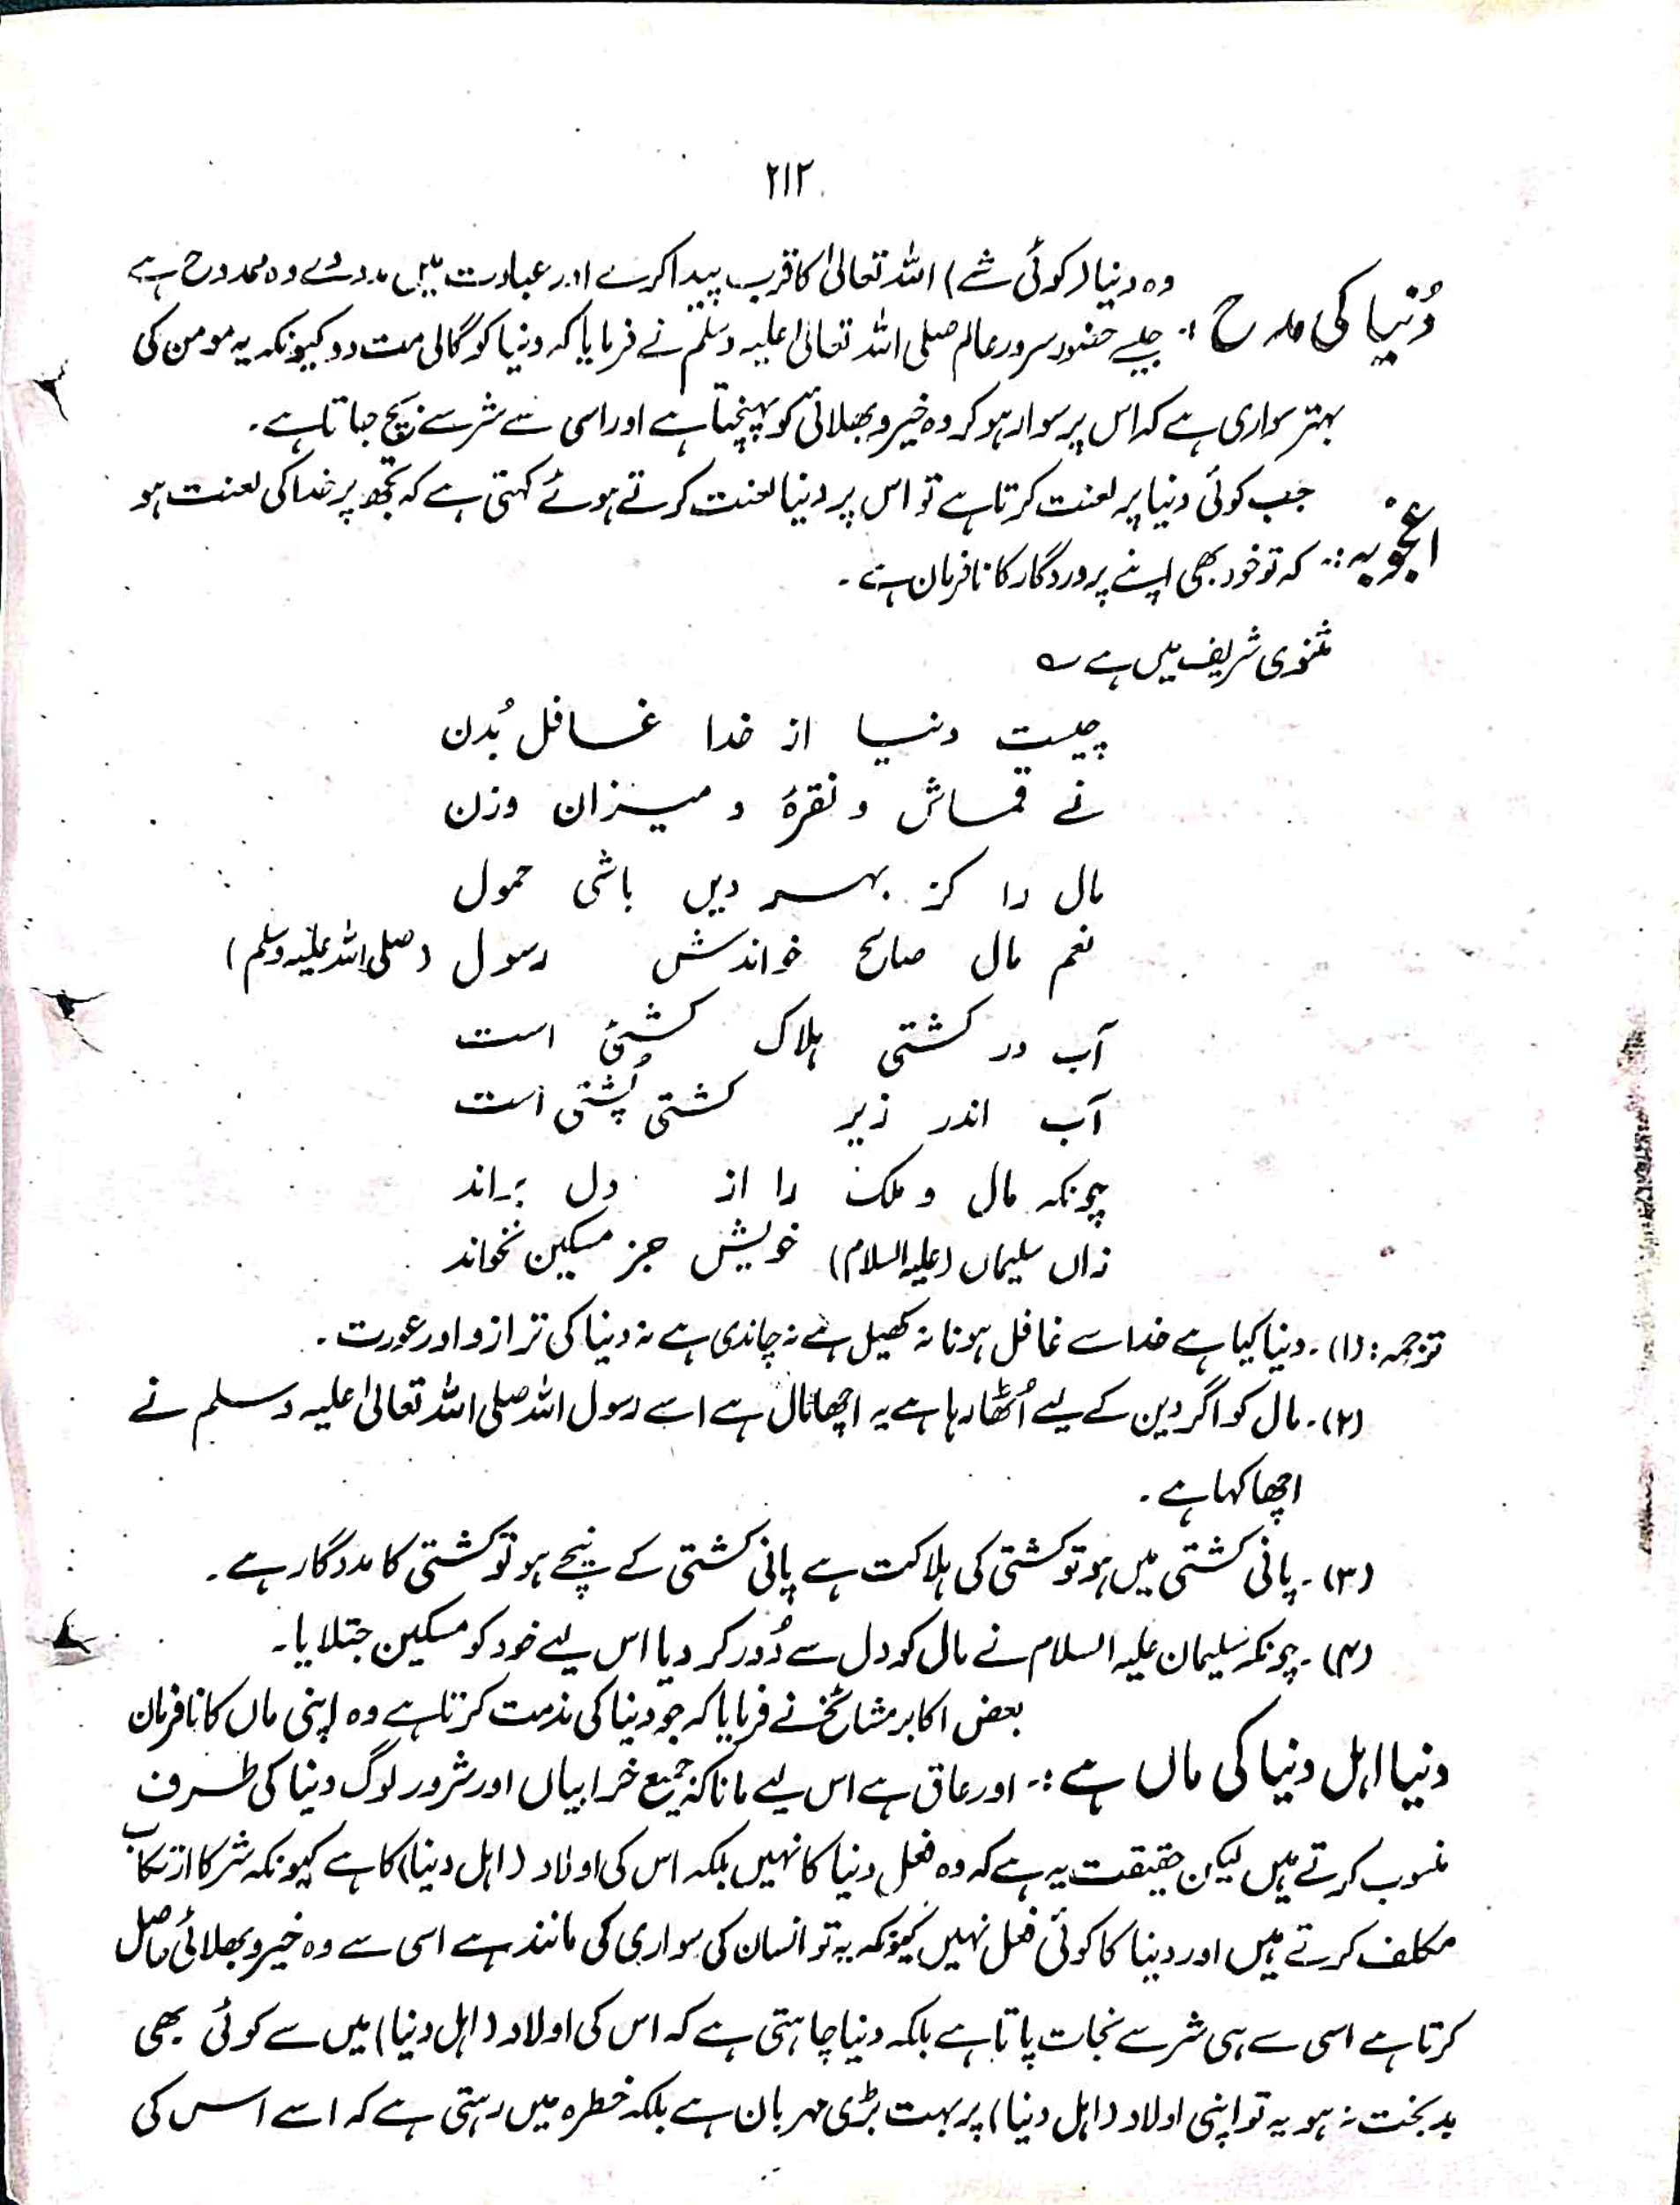 ۲۱۲
وہ دنیا (کوئی شے) اللہ تعالیٰ کا قرب پیدا کرے اور عبادت میں مدد دے وہ ممدوح ہے
دُنیا کی مدح :۔ جیسے حضور سرور عالم صلی اللہ تعالیٰ علیہ وسلم نے فرمایا کہ دنیا کو گالی مت دو کیونکہ یہ مومن کی
بہتر سواری ہے کہ اس پر سوار ہو کر وہ خیر و بھلائی کو پہنچتا ہے اور اسی سے شر سے بچ جاتا ہے۔
جب کوئی دنیا پر لعنت کرتا ہے تو اس پر دنیا لعنت کرتے ہوئے کہتی ہے کہ تجھ پر خدا کی لعنت ہو
اعجوبہ :۔ کہ تو خود بھی اپنے پروردگار کا نافرمان ہے۔
مثنوی شریف میں ہے ؎
چیست دنیا از خدا غافل بُدن
نے قماش و نقرہٗ و میزان وزن
مال را کز بہر دیں باشی حمول
نعم مال صالح خواندش رسول (صلی اللہ علیہ وسلم)
آب در کشتی ہلاک کشتیٔ است
آب اندر زیر کشتی پُشتی است
چونکہ مال و ملک را از دل براند
زاں سلیماں (علیہ السلام) خویش جز مسکین نخواند
ترجمہ : (۱)۔ دنیا کیا ہے خدا سے غافل ہونا نہ کھیل ہے نہ چاندی ہے نہ دنیا کی ترازو اور عورت۔
(۲)۔ مال کو اگر دین کے لیے اُٹھا رہا ہے یہ اچھا مال ہے اسے رسول اللہ صلی اللہ تعالیٰ علیہ وسلم نے
اچھا کہا ہے۔
(۳)۔ پانی کشتی میں ہو تو کشتی کی ہلاکت ہے پانی کشتی کے نیچے ہو تو کشتی کا مددگار ہے۔
(۴)۔ چونکہ سلیمان علیہ السلام نے مال کو دل سے دُور کر دیا اس لیے خود کو مسکین جتلایا۔
بعض اکابر مشائخ نے فرمایا کہ جو دنیا کی مذمت کرتا ہے وہ اپنی ماں کا نافرمان
دنیا اہل دنیا کی ماں ہے :۔ اور عاق ہے اس لیے مانا کہ جمیع خرابیاں اور شرور لوگ دنیا کی طرف
منسوب کرتے ہیں لیکن حقیقت یہ ہے کہ وہ فعل دنیا کا نہیں بلکہ اس کی اولاد (اہل دنیا) کا ہے کیونکہ شر کا ارتکاب
مکلف کرتے ہیں اور دنیا کا کوئی فعل نہیں کیونکہ یہ تو انسان کی سواری کی مانند ہے اسی سے وہ خیر و بھلائی حاصل
کرتا ہے اسی سے ہی شر سے نجات پاتا ہے بلکہ دنیا چاہتی ہے کہ اس کی اولاد (اہل دنیا) میں سے کوئی بھی
بدبخت نہ ہو یہ تو اپنی اولاد (اہل دنیا) پر بہت بڑی مہربان ہے بلکہ خطرہ میں رہتی ہے کہ اسے اس کی